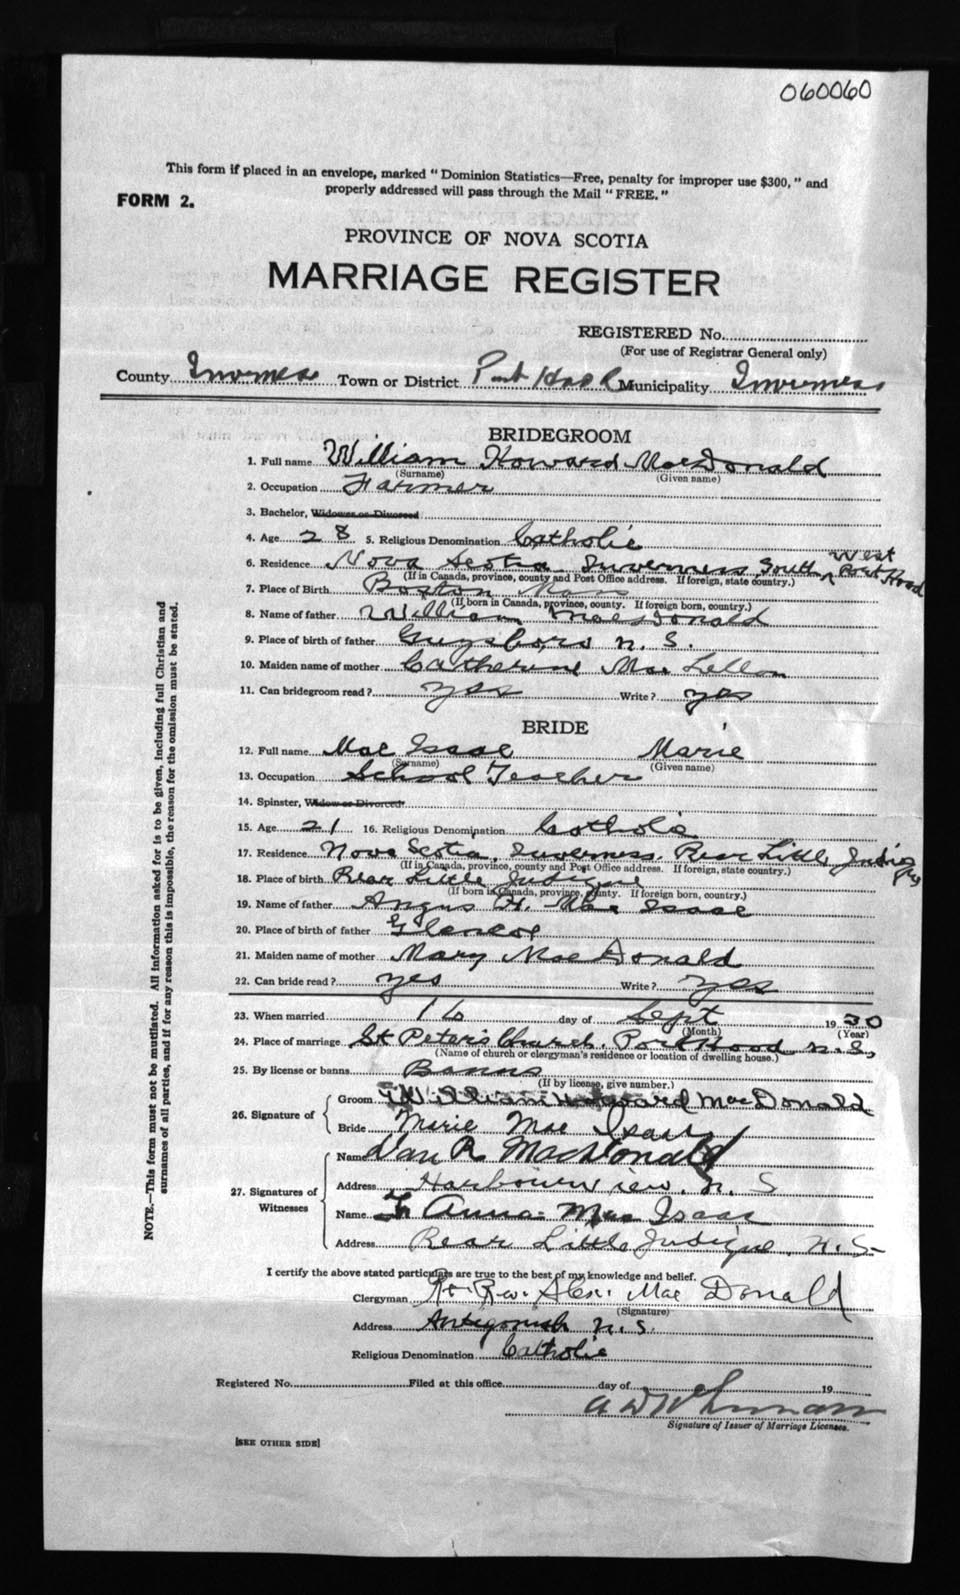 060060
This form if placed in an envelope, marked "Dominion Statistics—Free, penalty for improper use $300," and
properly addressed will pass through the Mail "FREE."
FORM 2.
PROVINCE OF NOVA SCOTIA
MARRIAGE REGISTER
REGISTERED No.
(For use of Registrar General only)
County Inverness Town or District Port Hood Municipality Inverness
BRIDEGROOM
1. Full name William Howard MacDonald
(Surname) (Given name)
2. Occupation Farmer
3. Bachelor, Widower or Divorced
4. Age 28 5. Religious Denomination Catholic
West
6. Residence Nova Scotia Inverness South Port Hood
(If in Canada, province, county and Post Office address. If foreign, state country.)
7. Place of Birth Boston Mass
(If born in Canada, province, county. If foreign born, country.)
8. Name of father William MacDonald
9. Place of birth of father Guysboro N.S.
10. Maiden name of mother Catherine MacLellan
11. Can bridegroom read? yes Write? yes
BRIDE
12. Full name Mac Isaac Marie
(Surname) (Given name)
13. Occupation School Teacher
14. Spinster, Widow or Divorced
15. Age 21 16. Religious Denomination Catholic
17. Residence Nova Scotia, Inverness, Rear Little Judique
(If in Canada, province, county and Post Office address. If foreign, state country.)
18. Place of birth Rear Little Judique
(If born in Canada, province, county. If foreign born, country.)
19. Name of father Angus H. Mac Isaac
20. Place of birth of father Glencoe
21. Maiden name of mother Mary MacDonald
22. Can bride read? yes Write? yes
23. When married 16 day of Sept 1930
(Month) (Year)
24. Place of marriage St Peter's Church, Port Hood N.S.
(Name of church or clergyman's residence or location of dwelling house.)
25. By license or banns Banns
(If by license, give number.)
26. Signature of Groom William Howard MacDonald
Bride Marie Mac Isaac
27. Signatures of Witnesses Name Dan R MacDonald
Address Harbourview, N. S
Name Anna Mac Isaac
Address Rear Little Judique, N.S.
I certify the above stated particulars are true to the best of my knowledge and belief.
Clergyman Rt. Rev. Alex. Mac Donald
(Signature)
Address Antigonish N.S.
Religious Denomination Catholic
Registered No. Filed at this office day of 19
Signature of Issuer of Marriage Licenses.
[SEE OTHER SIDE]
NOTE.—This form must not be mutilated. All information asked for is to be given, including full Christian and
surnames of all parties, and if for any reason this is impossible, the reason for the omission must be stated.